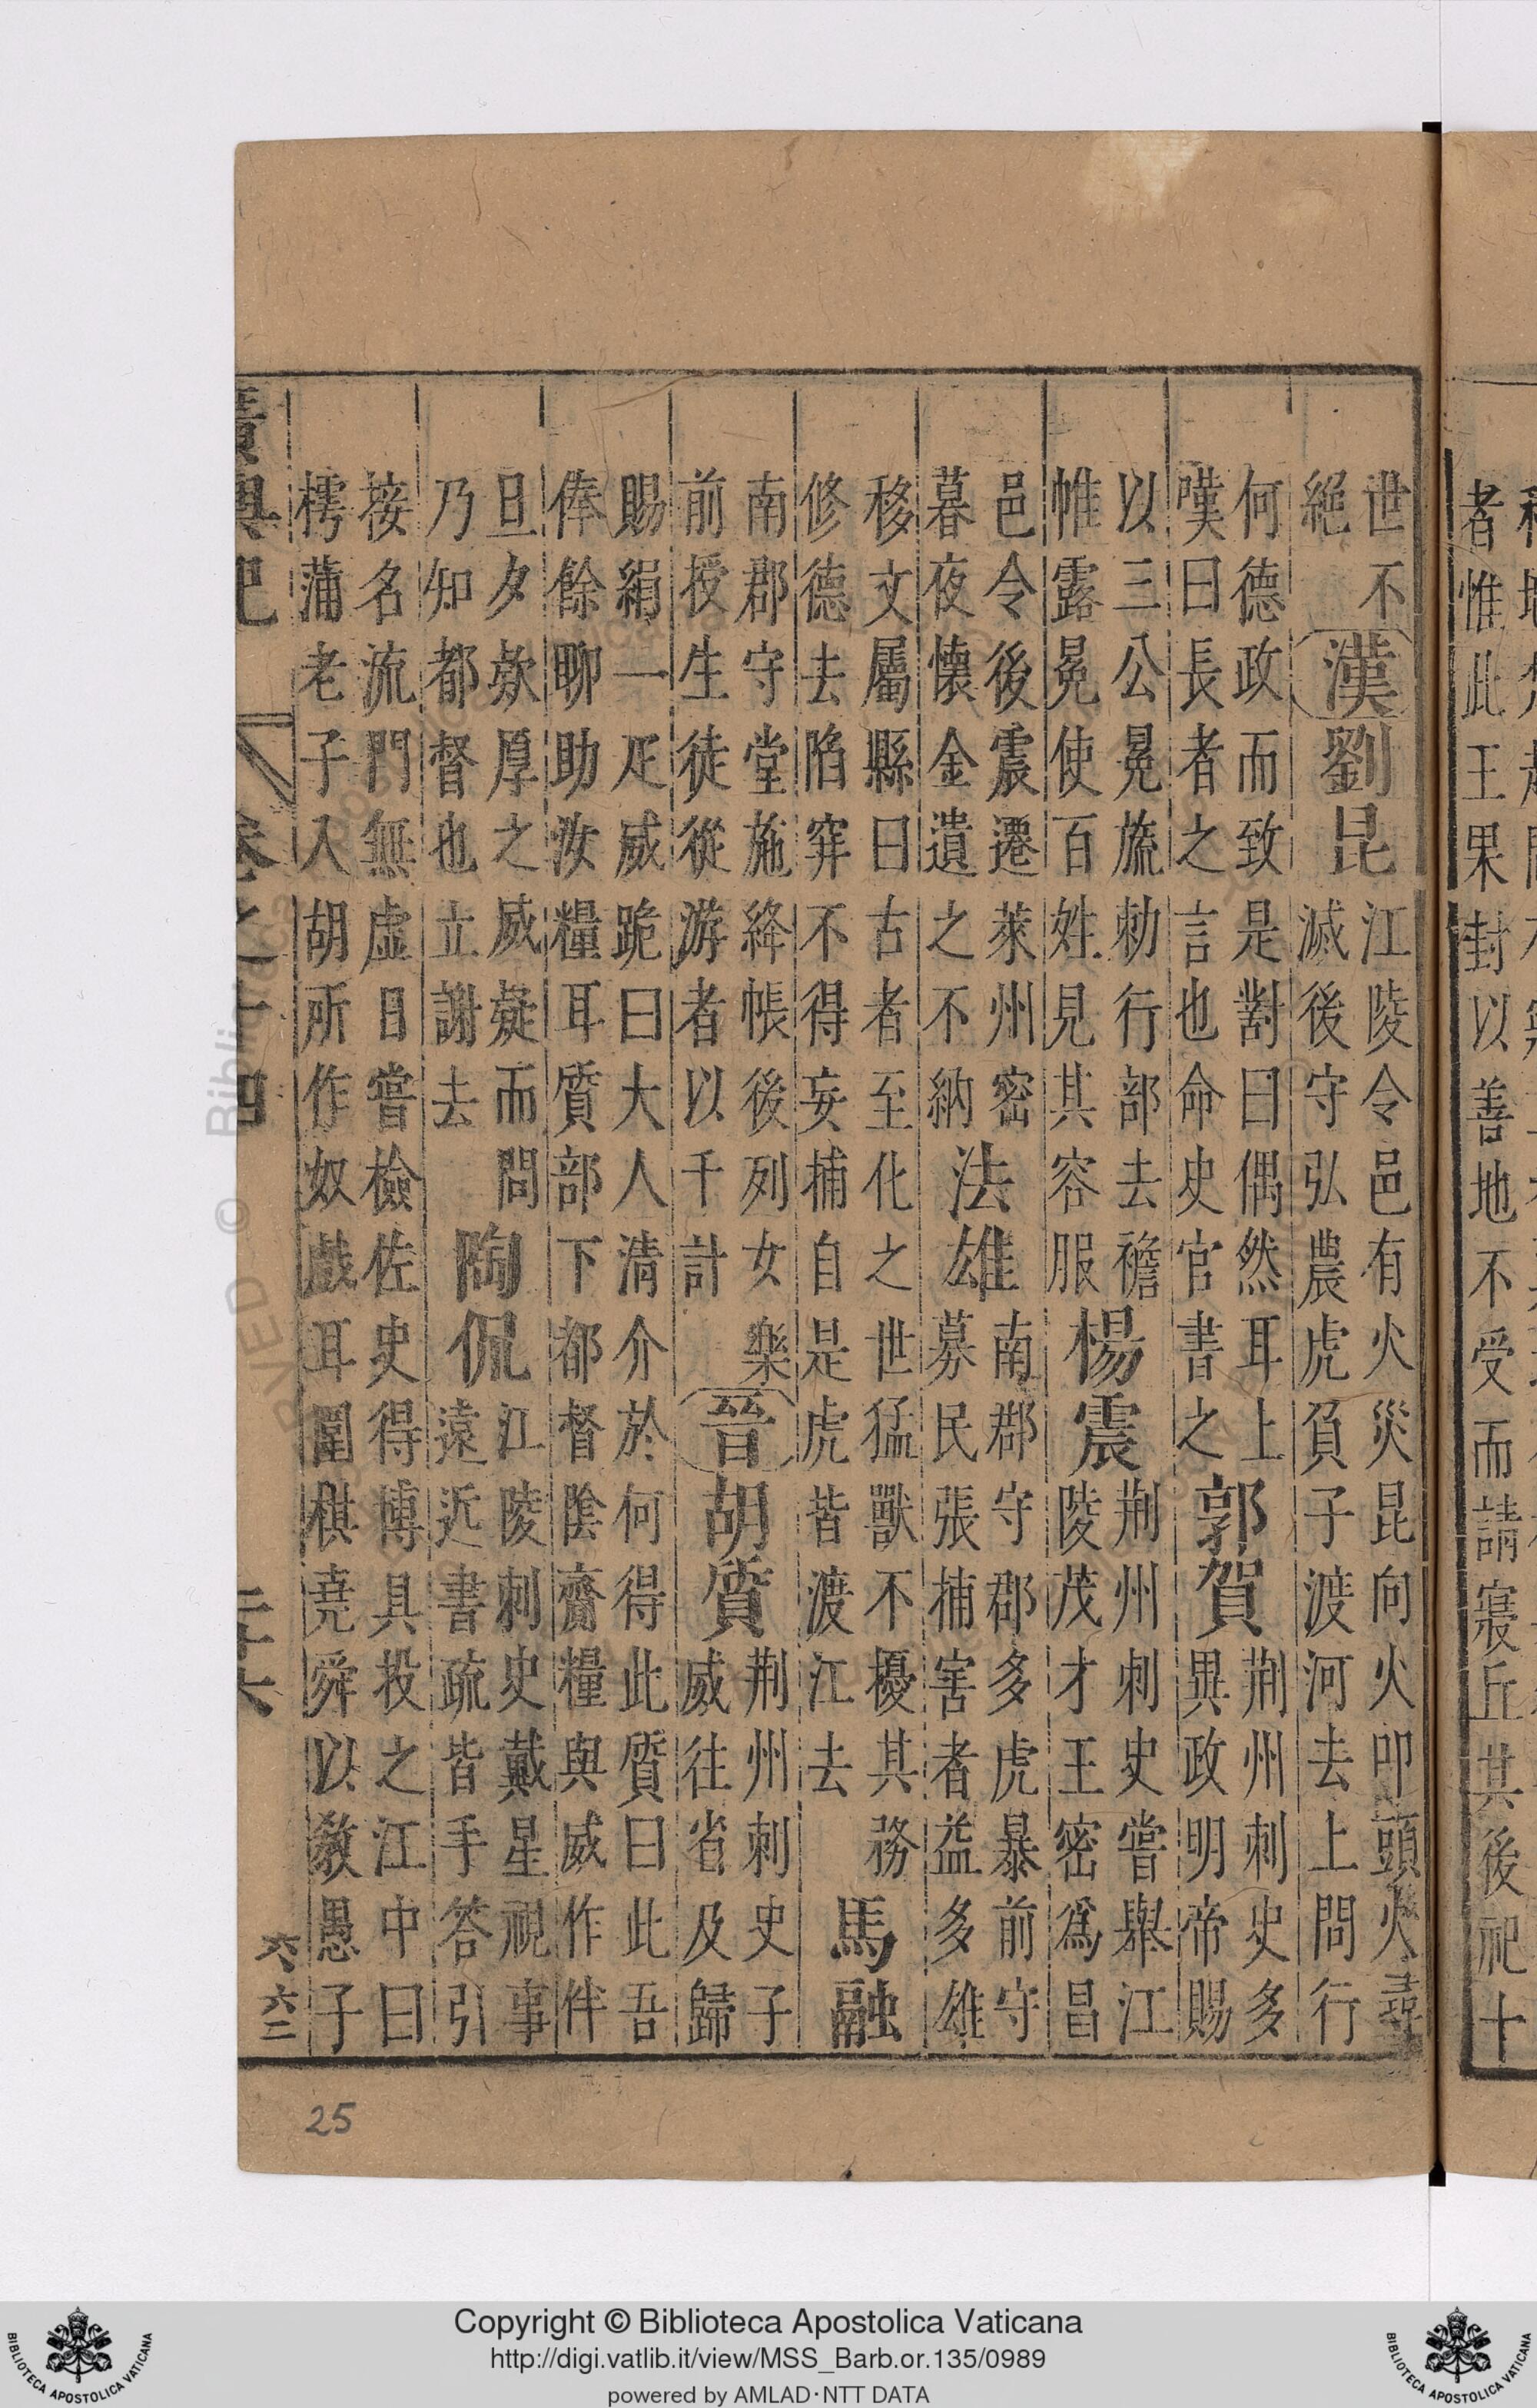 者惟此王果封以善地不受而請寢丘其後祀十
世不
絕
漢劉昆
江陵令邑有火災昆向火叩頭火尋
滅後守弘農虎負子渡河去上問行
何德政而致是對曰偶然耳上
嘆曰長者之言也命史官書之
郭賀
荆州刺史多
異政明帝賜
以三公冕旒勅行部去襜
帷露冕使百姓見其容服
楊震
荆州刺史嘗舉江
陵茂才王密爲昌
邑令後震遷萊州密
暮夜懷金遺之不納
法雄
南郡守郡多虎暴前守
募民張捕害者益多雄
移文屬縣曰古者至化之世猛獸不擾其務
修德去陷穽不得妄捕自是虎皆渡江去
馬融
南郡守堂施絳帳後列女樂
前授生徒從游者以千計
晉胡質
荆州刺史子
威往省及歸
賜絹一疋威跪曰大人清介於何得此質曰此吾
俸餘聊助汝糧耳質部下都督陰齎糧與威作伴
旦夕欵厚之威疑而問
乃知都督也立謝去
陶侃
江陵刺史戴星視事
遠近書疏皆手答引
接名流門無虛日嘗檢佐史得博具投之江中曰
樗蒲老子入胡所作奴戲耳圍棋堯舜以敎愚子
廣輿記 卷之十四 二十六 六六二
25
Copyright © Biblioteca Apostolica Vaticana
http://digi.vatlib.it/view/MSS_Barb.or.135/0989
powered by AMLAD·NTT DATA
BIBLIOTECA APOSTOLICA VATICANA
BIBLIOTECA APOSTOLICA VATICANA